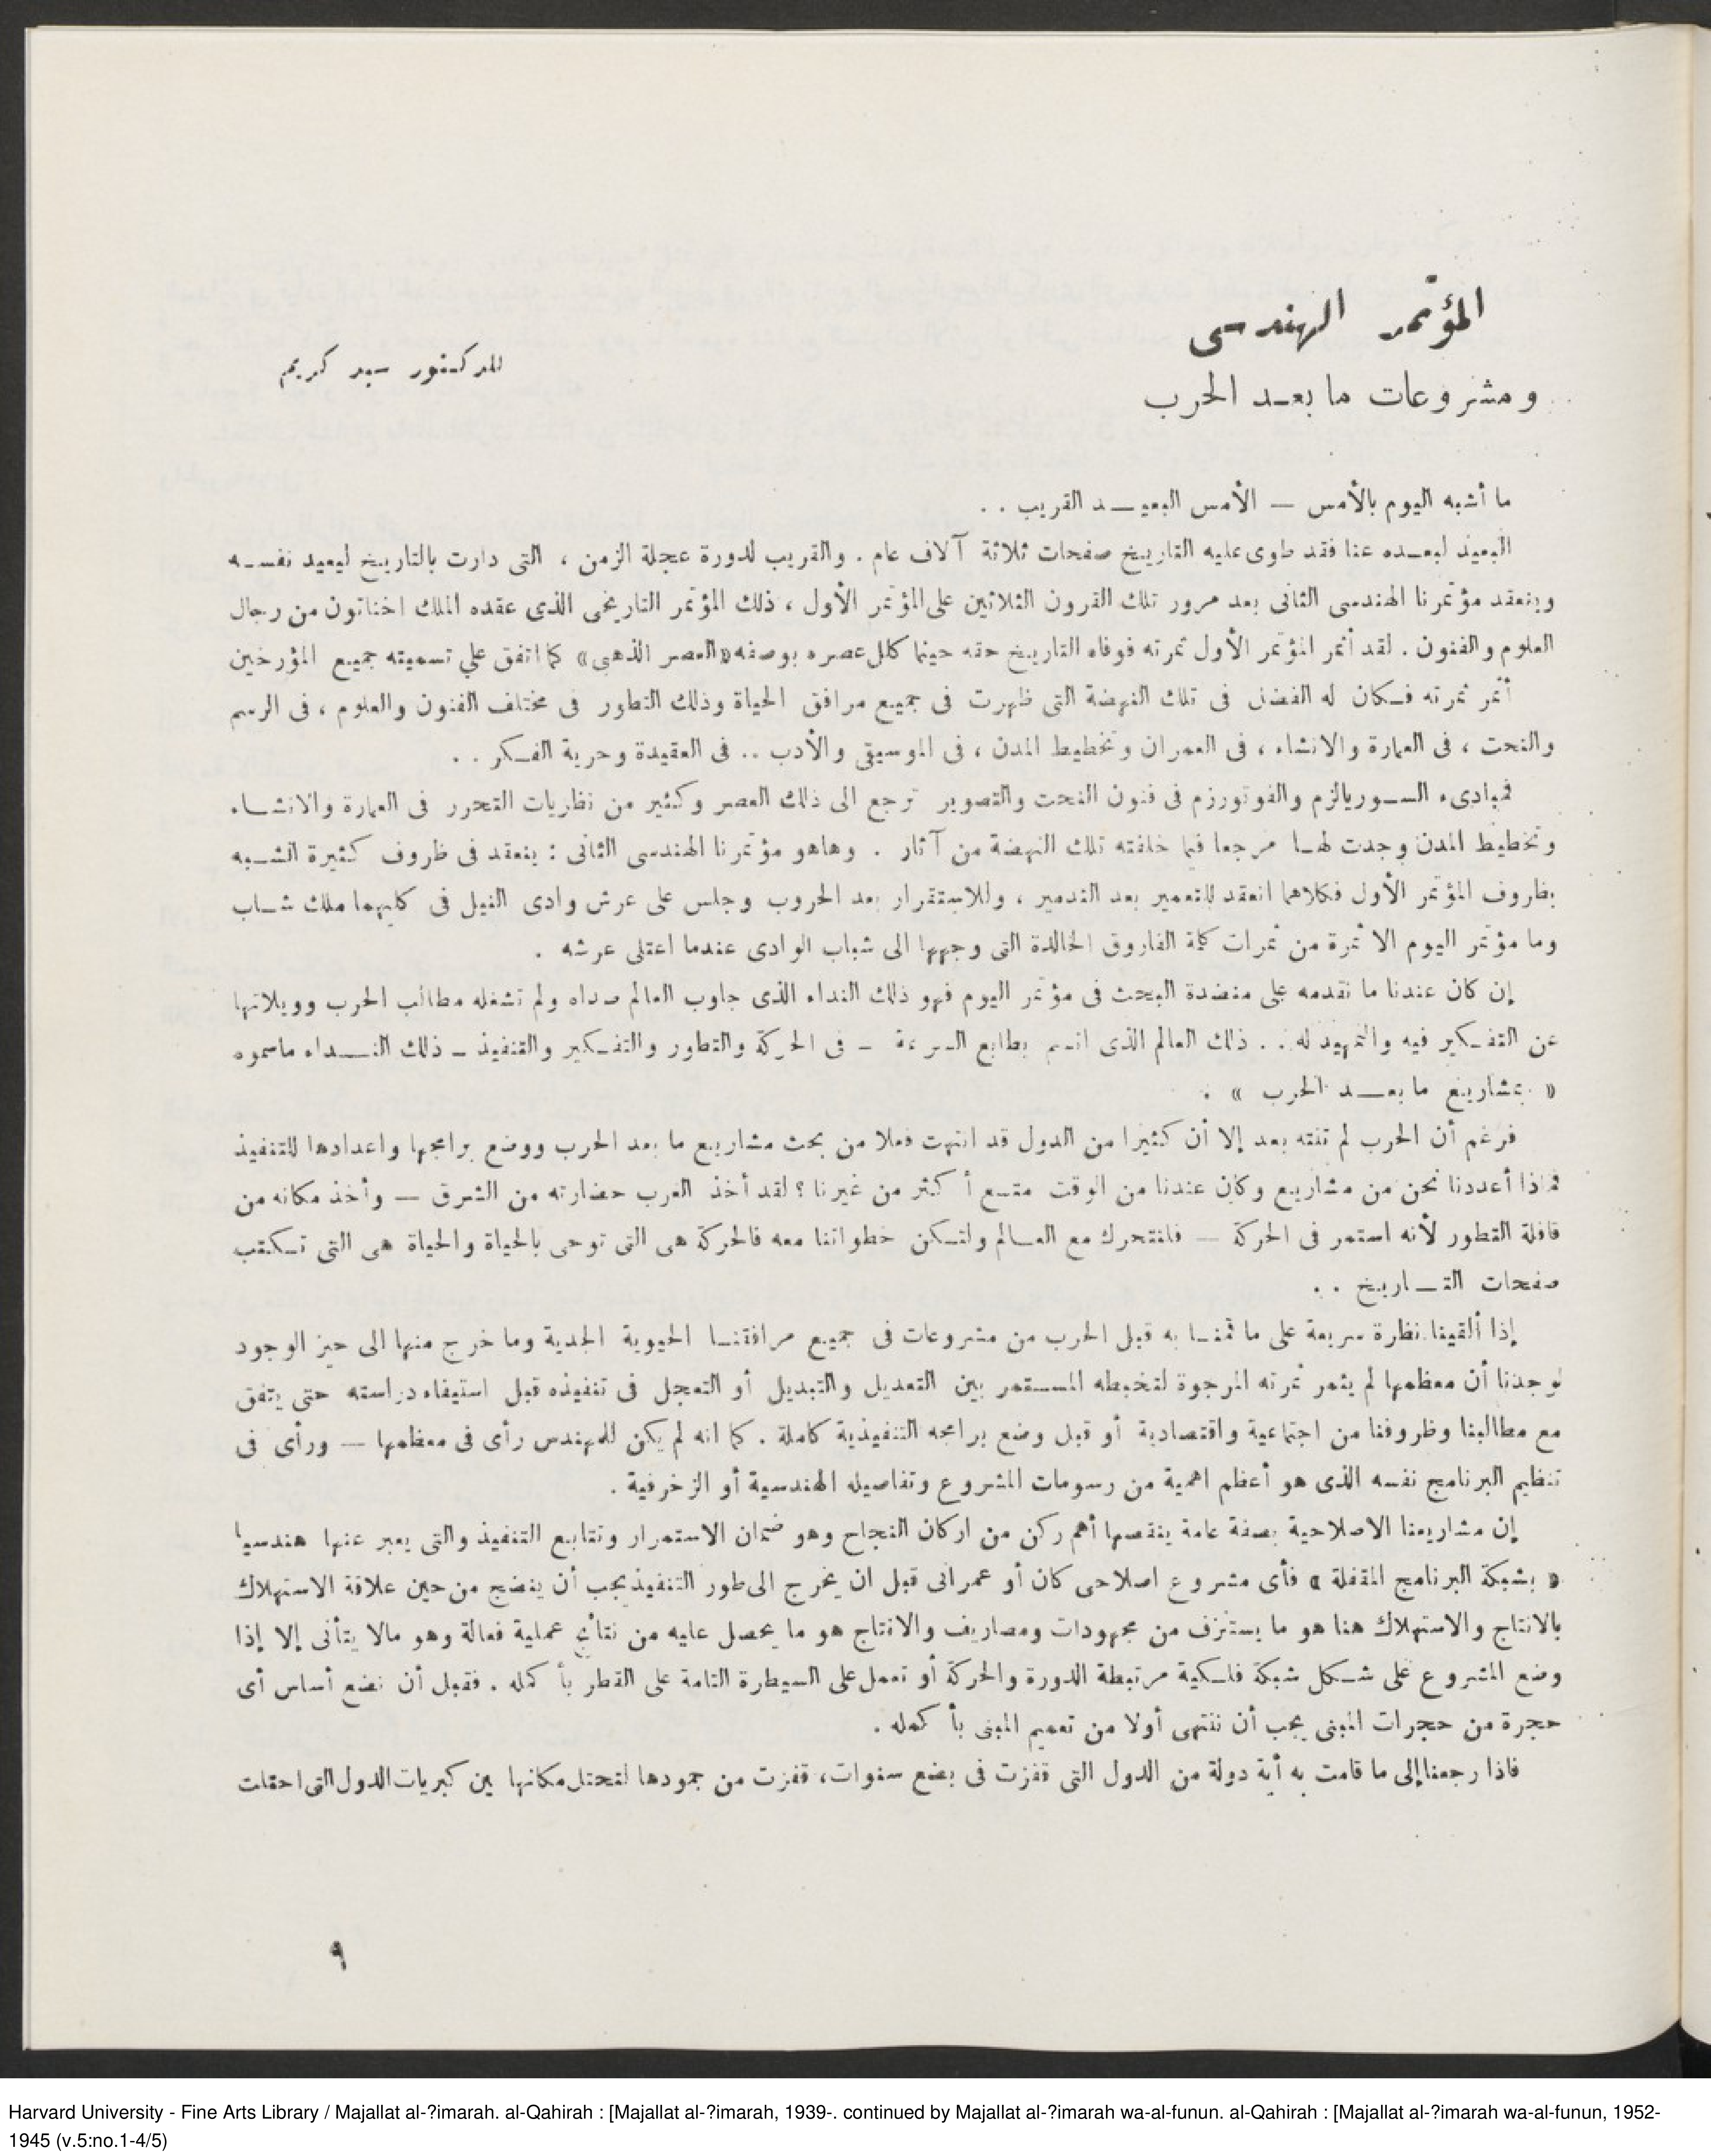 المؤتمر الهندسى
ومشروعات ما بعد الحرب
للدكتور سيد كريم
ما أشبه اليوم بالأمس — الأمس البعيد القريب . .
البعيد لبعده عنا فقد طوى عليه التاريخ صفحات ثلاثة آلاف عام . والقريب لدورة عجلة الزمن ، التى دارت بالتاريخ ليعيد نفسه
وينعقد مؤتمرنا الهندسى الثانى بعد مرور تلك القرون الثلاثين على المؤتمر الأول ، ذلك المؤتمر التاريخى الذى عقده الملك اخناتون من رجال
العلوم والفنون . لقد أثمر المؤتمر الأول ثمرته فوفاه التاريخ حقه حينما كلل عصره بوصفه «العصر الذهبى» كما اتفق علي تسميته جميع المؤرخين
أثمر ثمرته فكان له الفضل فى تلك النهضة التى ظهرت فى جميع مرافق الحياة وذلك التطور فى مختلف الفنون والعلوم ، فى الرسم
والنحت ، فى العمارة والانشاء ، فى العمران وتخطيط المدن ، فى الموسيقى والأدب .. فى العقيدة وحرية الفكر . .
فمبادىء السوريالزم والفوتورزم فى فنون النحت والتصوير ترجع الى ذلك العصر وكثير من نظريات التحرر فى العمارة والانشاء
وتخطيط المدن وجدت لها مرجعا فيما خلفته تلك النهضة من آثار . وهاهو مؤتمرنا الهندسى الثانى : ينعقد فى ظروف كثيرة الشبه
بظروف المؤتمر الأول فكلاهما انعقد للتعمير بعد التدمير ، وللاستقرار بعد الحروب وجلس على عرش وادى النيل فى كليهما ملك شاب
وما مؤتمر اليوم الا ثمرة من ثمرات كلمة الفاروق الخالدة التى وجهها الى شباب الوادى عندما اعتلى عرشه .
إن كان عندنا ما نقدمه على منضدة البحث فى مؤتمر اليوم فهو ذلك النداء الذى جاوب العالم صداه ولم تشغله مطالب الحرب وويلاتها
عن التفكير فيه والتمهيد له . . ذلك العالم الذى اتسم بطابع السرعة — فى الحركة والتطور والتفكير والتنفيذ — ذلك النداء ماسموه
« بمشاريع ما بعد الحرب » .
فرغم أن الحرب لم تنته بعد إلا أن كثيرا من الدول قد انتهت فعلا من بحث مشاريع ما بعد الحرب ووضع برامجها واعدادها للتنفيذ
فماذا أعددنا نحن من مشاريع وكان عندنا من الوقت متسع أكثر من غيرنا ؟ لقد أخذ الغرب حضارته من الشرق — وأخذ مكانه من
قافلة التطور لأنه استمر فى الحركة — فلنتحرك مع العالم ولتكن خطواتنا معه فالحركة هى التى توحى بالحياة والحياة هى التى تكتب
صفحات التاريخ . .
إذا ألقينا نظرة سريعة على ما قمنا به قبل الحرب من مشروعات فى جميع مرافقنا الحيوية الجدية وما خرج منها الى حيز الوجود
لوجدنا أن معظمها لم يثمر ثمرته المرجوة لتخبطه المستمر بين التعديل والتبديل أو التعجل فى تنفيذه قبل استيفاء دراسته حتى يتفق
مع مطالبنا وظروفنا من اجتماعية واقتصادية أو قبل وضع برامجه التنفيذية كاملة . كما انه لم يكن للمهندس رأى فى معظمها — ورأى فى
تنظيم البرنامج نفسه الذى هو أعظم اهمية من رسومات المشروع وتفاصيله الهندسية أو الزخرفية .
إن مشاريعنا الاصلاحية بصفة عامة ينقصها أهم ركن من اركان النجاح وهو ضمان الاستمرار وتتابع التنفيذ والتى يعبر عنها هندسيا
« بشبكة البرنامج المقفلة » فأى مشروع اصلاحى كان أو عمرانى قبل ان يخرج الى طور التنفيذ يجب أن ينضج من حين علاقة الاستهلاك
بالانتاج والاستهلاك هنا هو ما يستنزف من مجهودات ومصاريف والانتاج هو ما يحصل عليه من نتائج عملية فعالة وهو مالا يتأتى إلا إذا
وضع المشروع على شكل شبكة فلكية مرتبطة الدورة والحركة أو تعمل على السيطرة التامة على القطر بأكمله . فقبل أن نضع أساس أى
حجرة من حجرات المبنى يجب أن ننتهى أولا من تعميم المبنى بأكمله .
فاذا رجعنا إلى ما قامت به أية دولة من الدول التى قفزت فى بضع سنوات، قفزت من جمودها لتحتل مكانها بين كبريات الدول التى احتلت
٩
Harvard University - Fine Arts Library / Majallat al-?imarah. al-Qahirah : [Majallat al-?imarah, 1939-. continued by Majallat al-?imarah wa-al-funun. al-Qahirah : [Majallat al-?imarah wa-al-funun, 1952-
1945 (v.5:no.1-4/5)